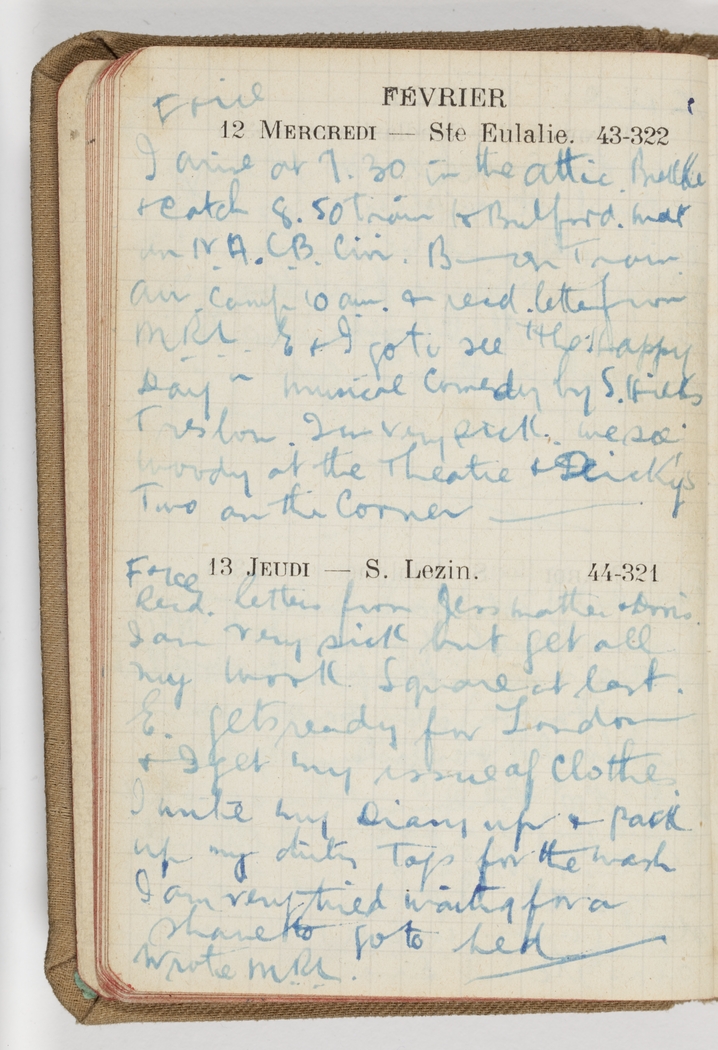 FÉVRIER
12 MERCREDI — Ste Eulalie. 43-322
I arise at 7.30 in the attic.
& catch 8.50 train to Bulford. met
an N.A.C.B. Civi. B— on Train
arr. Camp 10 am. & recd. letter from
MRL. E & I go to see "the Happy
Day" musical Comedy by S. Hicks
I am very sick. we see
woody at the Theatre & Dicky's
Two on the Corner
13 JEUDI — S. Lezin. 44-321
Recd. letters from Jess mother & Doris.
I am very sick but get all
my work Square at last.
E. gets ready for London
& I get my issue of Clothes
I write my Diary up & pack
up my dirty Togs for the wash
I am very tired waiting for a
to go to bed
Wrote MRL.